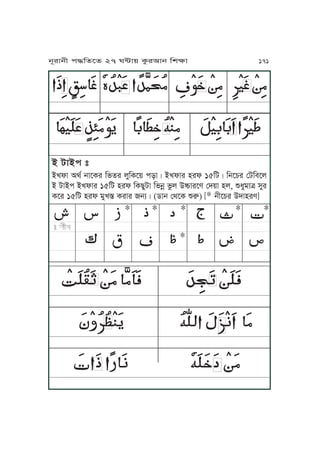 নূরানী পদ্ধতিতে ২৭ ঘন্টায় কুরআন শিক্ষা ১৭১
مِنْ غَيْرِ مِنْ خَوْفٍ مُحَمَّدًا عَبْدُهٗ غَاسِقٍ اِذَا
طَيْرًا اَبَابِيْلَ مِنْهُ خِطَابًا يَوْمَئِذٍ عَلَيْهَا
ই টাইপ ঃ
ইখফা অর্থ নাকের ভিতর লুকিয়ে পড়া। ইখফার হরফ ১৫টি। নিচের টেবিলে
ই টাইপ ইখফার ১৫টি হরফ কিছুটা ভিন্ন ভুল উচ্চারণে দেয়া হল, শুধুমাত্র সুর
করে ১৫টি হরফ মুখস্ত করার জন্য। (ডান থেকে শুরু) [* নীচের উদাহরণ]
ت* ث* ج د* ذ* ز* س ش
ص ض ط ظ* ف ق ك
فَلَنْ تَجِدَ فَاَمَّا مَنْ ثَقُلَتْ
مَا اَنْزَلَ اللّٰهُ يَنْظُرُوْنَ
مَنْ دَخَلَهٗ نَارًا ذَاتَ